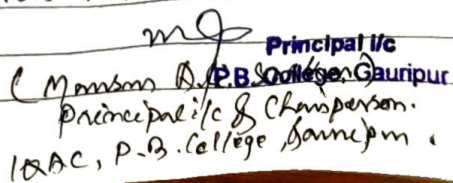 Principal i/c
P.B. College, Gauripur
Principal i/c & Chairperson.
IQAC, P.B. College, Gauripur.